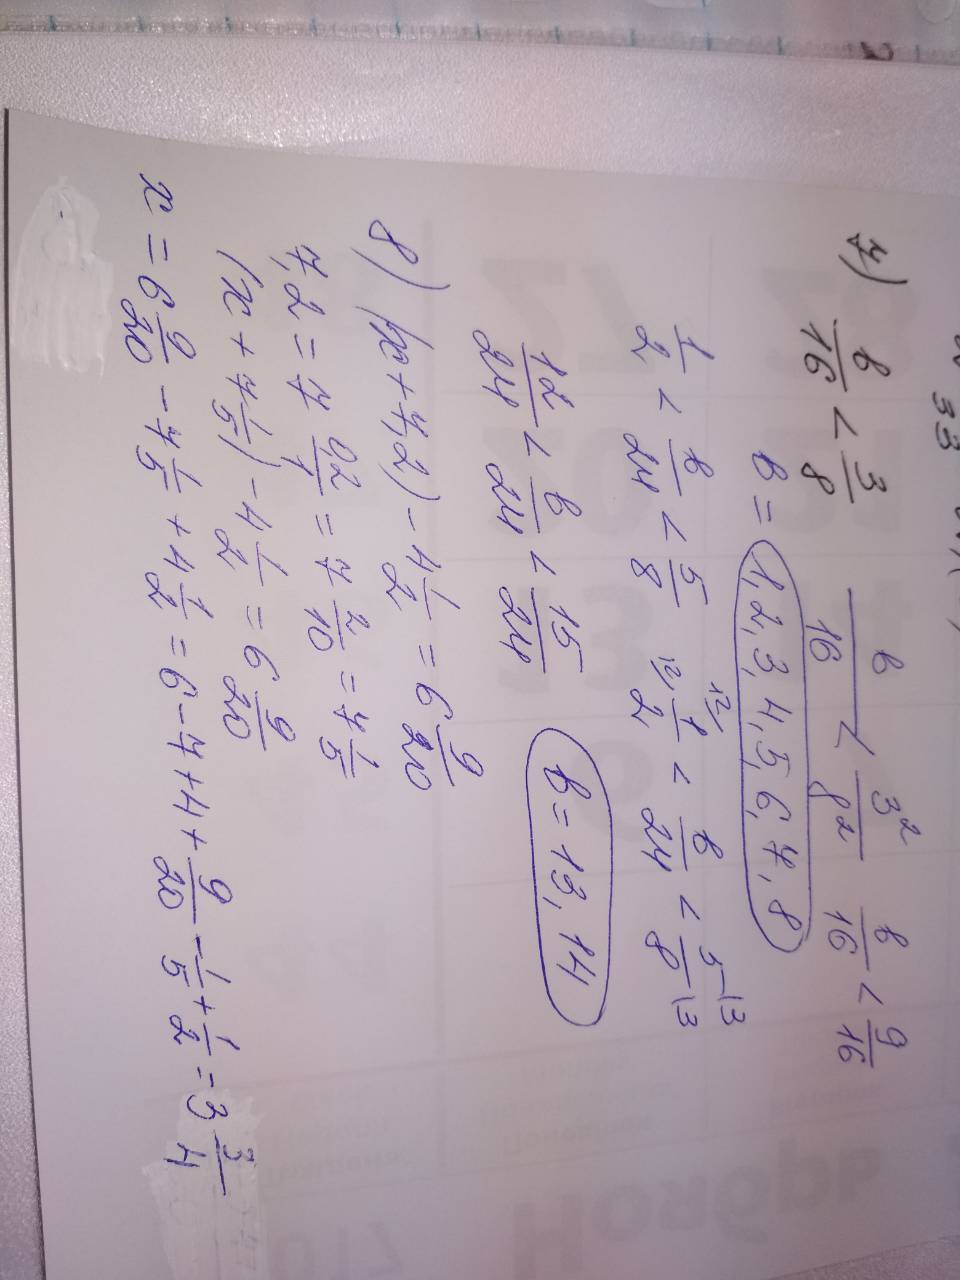 33
7) в/16 < 3/8 в/16 < 3²/8² в/16 < 9/16
в = 1, 2, 3, 4, 5, 6, 7, 8
1/2 < в/24 < 5/8 12/ 1/2 12/ < в/24 < 5/8 \3 \3
12/24 < в/24 < 15/24 в = 13, 14
8) (x + 7,2) - 4 1/2 = 6 9/20
7,2 = 7 02/1 = 7 2/10 = 7 1/5
(x + 7 1/5) - 4 1/2 = 6 9/20
x = 6 9/20 - 7 1/5 + 4 1/2 = 6 - 7 + 4 + 9/20 - 1/5 + 1/2 = 3 3/4